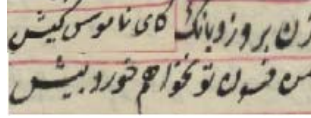 زن برو زد بانک کای ناموس کیش
من فسون تو نخواهم خورد بیش